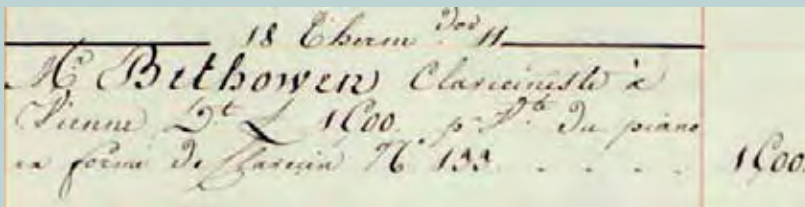 18 Therm.dor 11
Mr. Bethowen Claveciniste à
Vienne Dt £ 1500. p. Vte du piano
en forme de Clavecin No. 133. - - - - 1500.